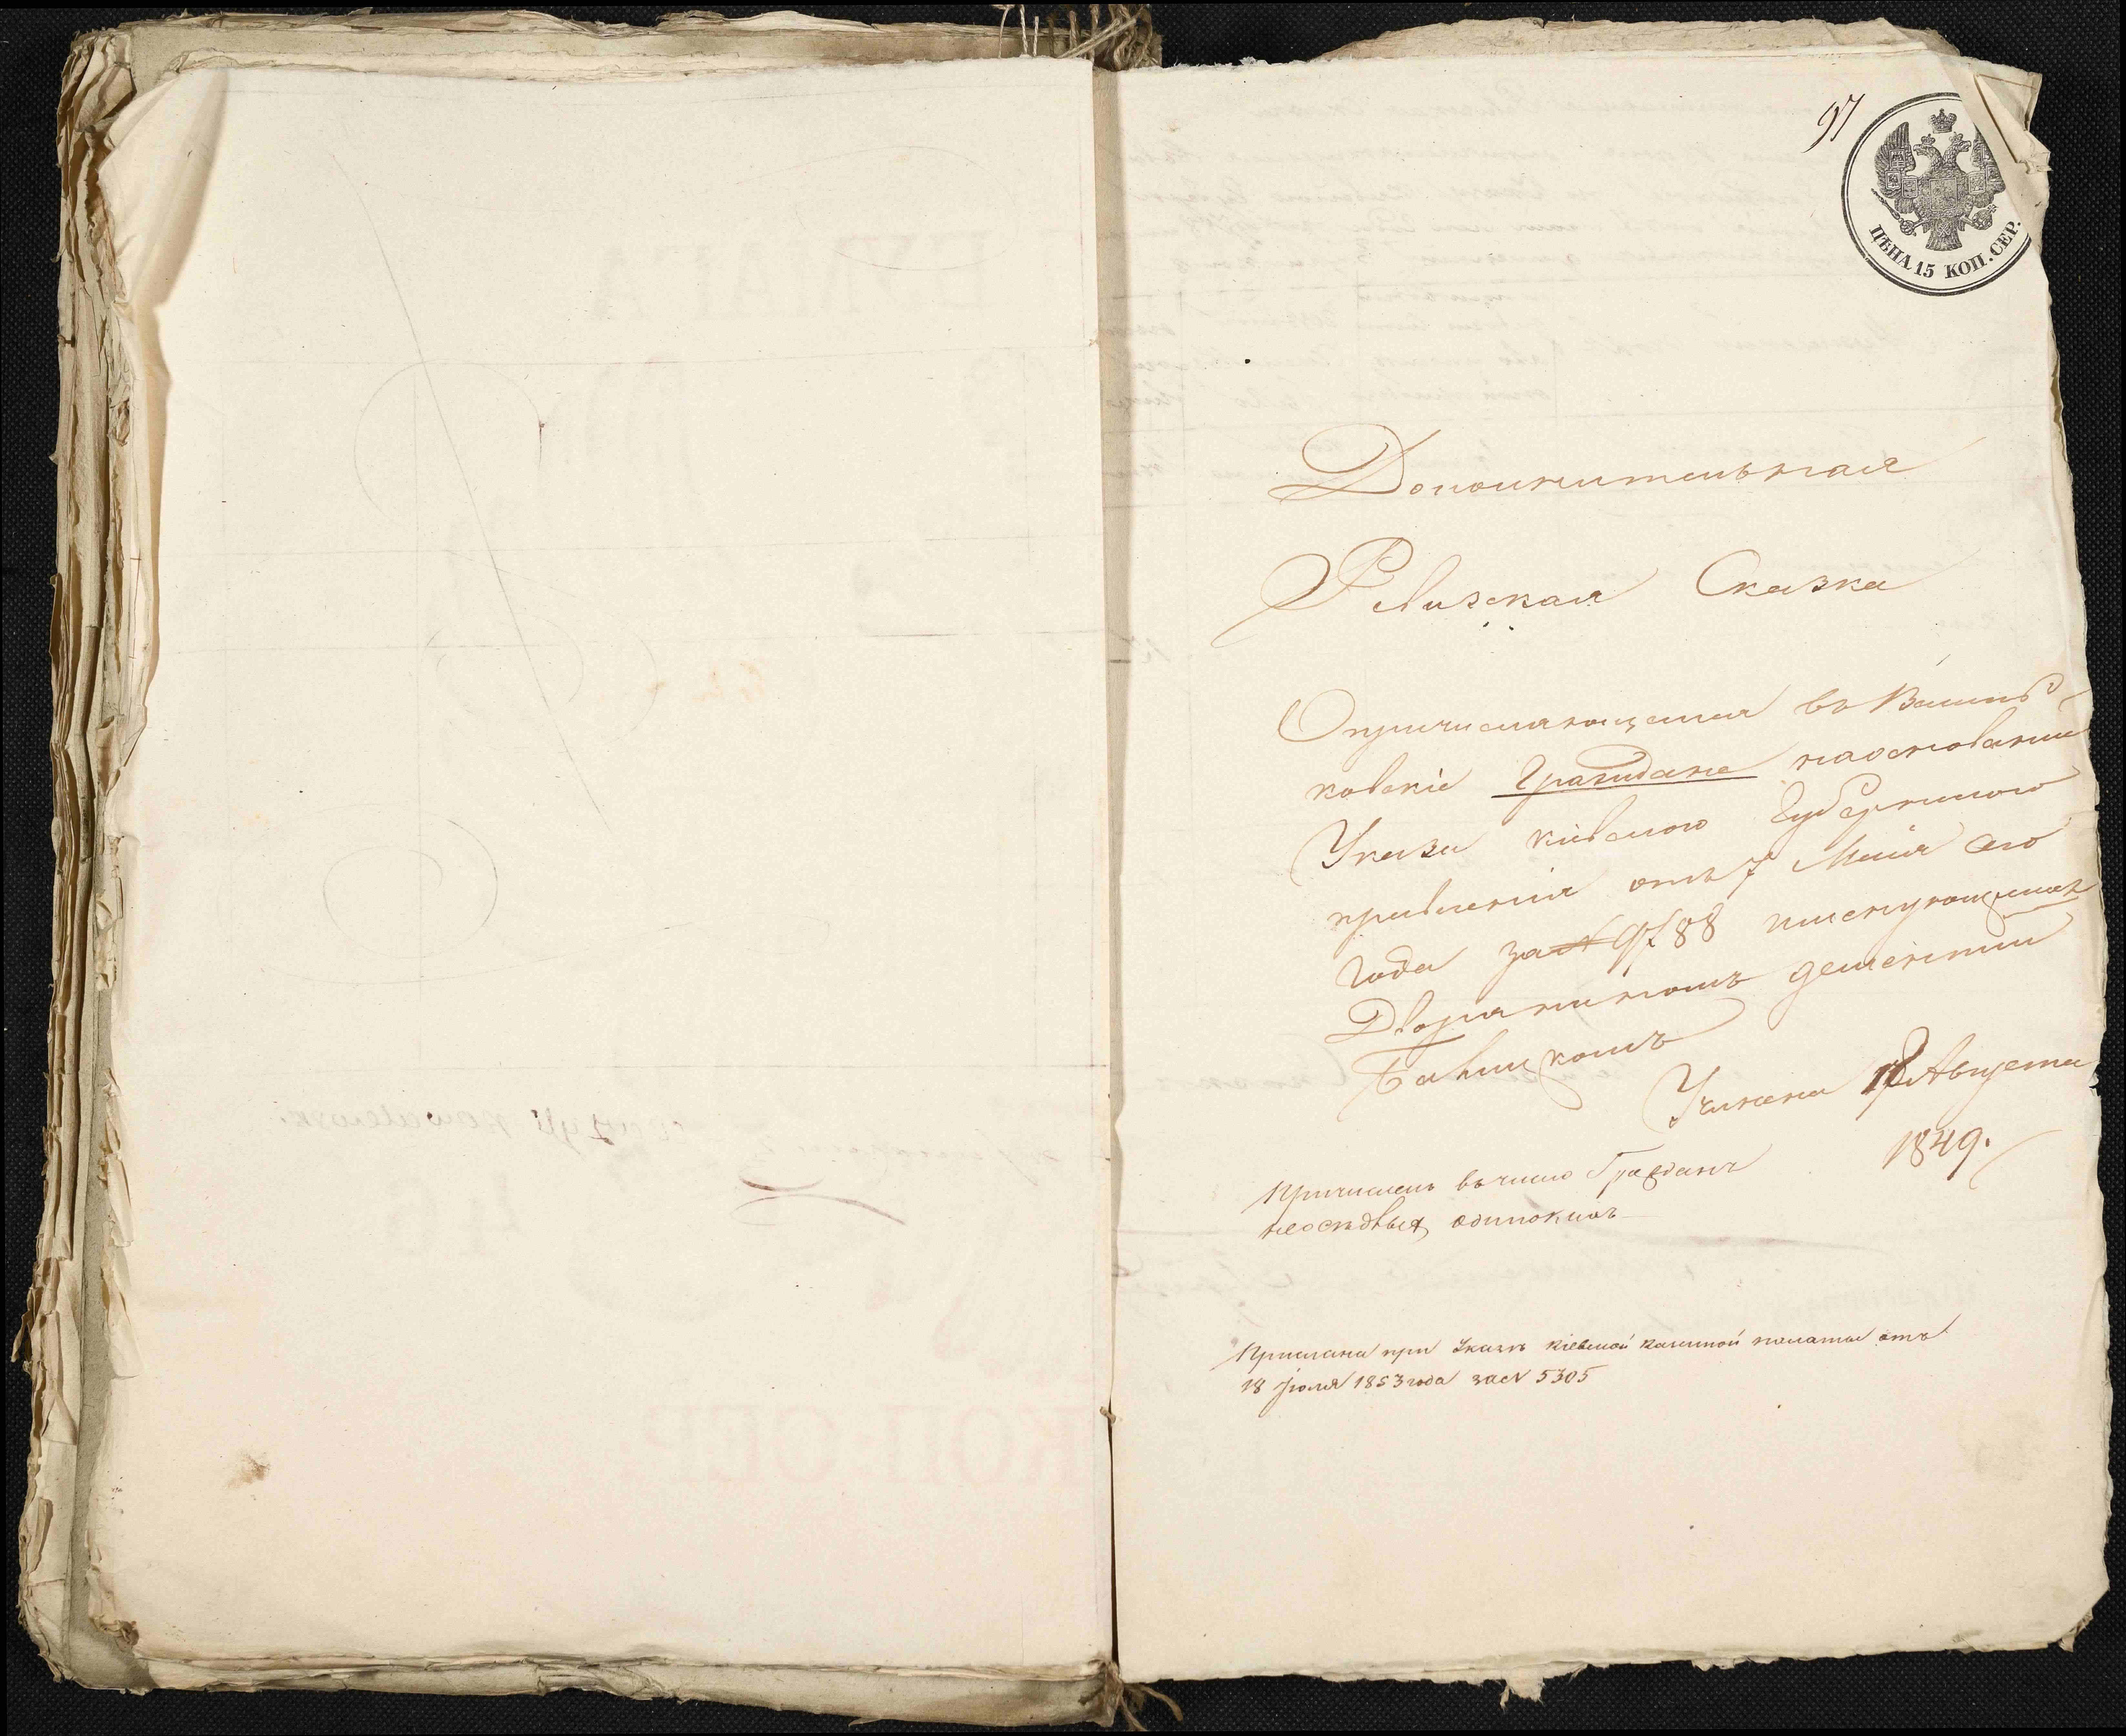 97
ЦѢНА 15 КОП. СЕР.
Дополнительная
Ревизская Сказка
О причисляющемся въ Василь-
ковскіе Граждане на основании
Указа Кіевского Губернского
правленія отъ 7 Мая сего
года за № 9788 именующемся
Дворянином
Учинена 18 Августа
1849.
Причислен въ число Граждан
неоседлых одиноким
Прислана при Указѣ Кіевской Казенной палаты отъ
18 Июля 1853 года за № 5305